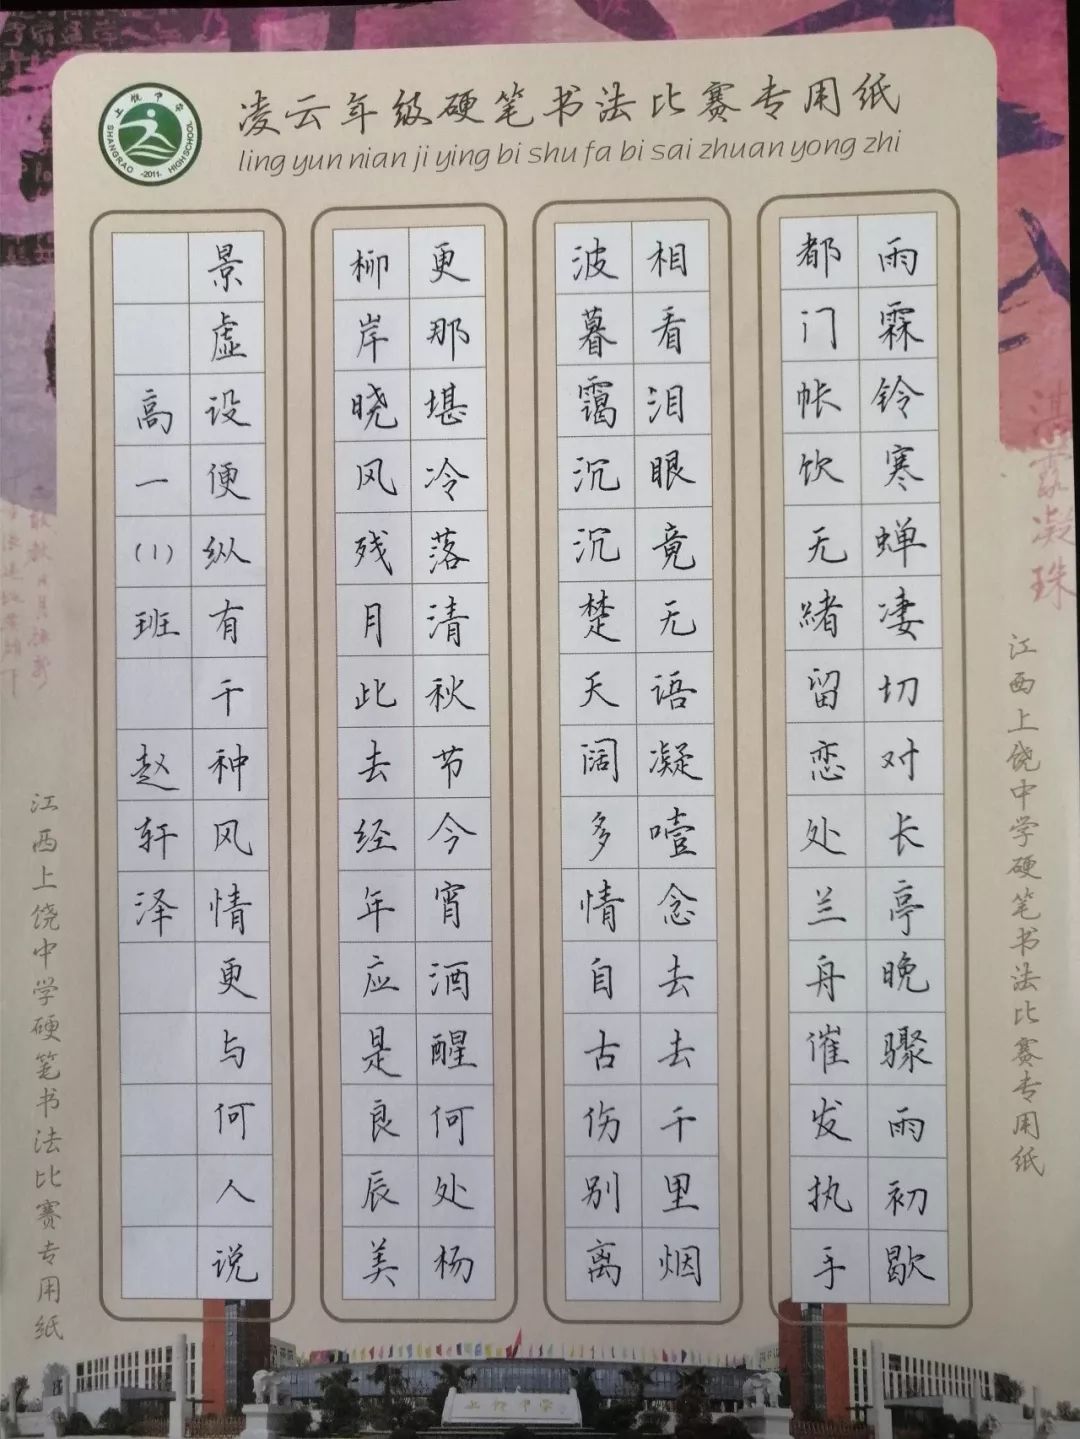 凌云年级硬笔书法比赛专用纸
ling yun nian ji ying bi shu fa bi sai zhuan yong zhi
上饶中学
SHANGRAO HIGH SCHOOL
-2011-
雨霖铃寒蝉凄切对长亭晚骤雨初歇
都门帐饮无緒留恋处兰舟催发执手
相看泪眼竟无语凝噎念去去千里烟
波暮霭沉沉楚天阔多情自古伤别离
更那堪冷落清秋节今宵酒醒何处杨
柳岸晓风残月此去经年应是良辰美
景虚设便纵有千种风情更与何人说
高一(1)班 赵轩泽
江西上饶中学硬笔书法比赛专用纸
江西上饶中学硬笔书法比赛专用纸
凝珠
上饶中学